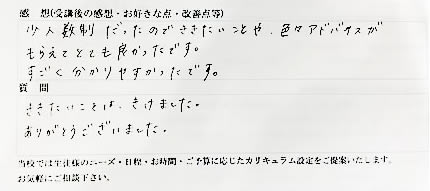 感　想(受講後の感想・お好きな点・改善点等)
少人数制 だったので ききたいことや、色々アドバイスが
もらえてとても良かったです。
すごく分かりやすかったです。
質　問
ききたいことは、きけました。
ありがとうございました。
当校では生徒様のニーズ・日程・お時間・ご予算に応じたカリキュラム設定をご提案いたします。
お気軽にご相談下さい。